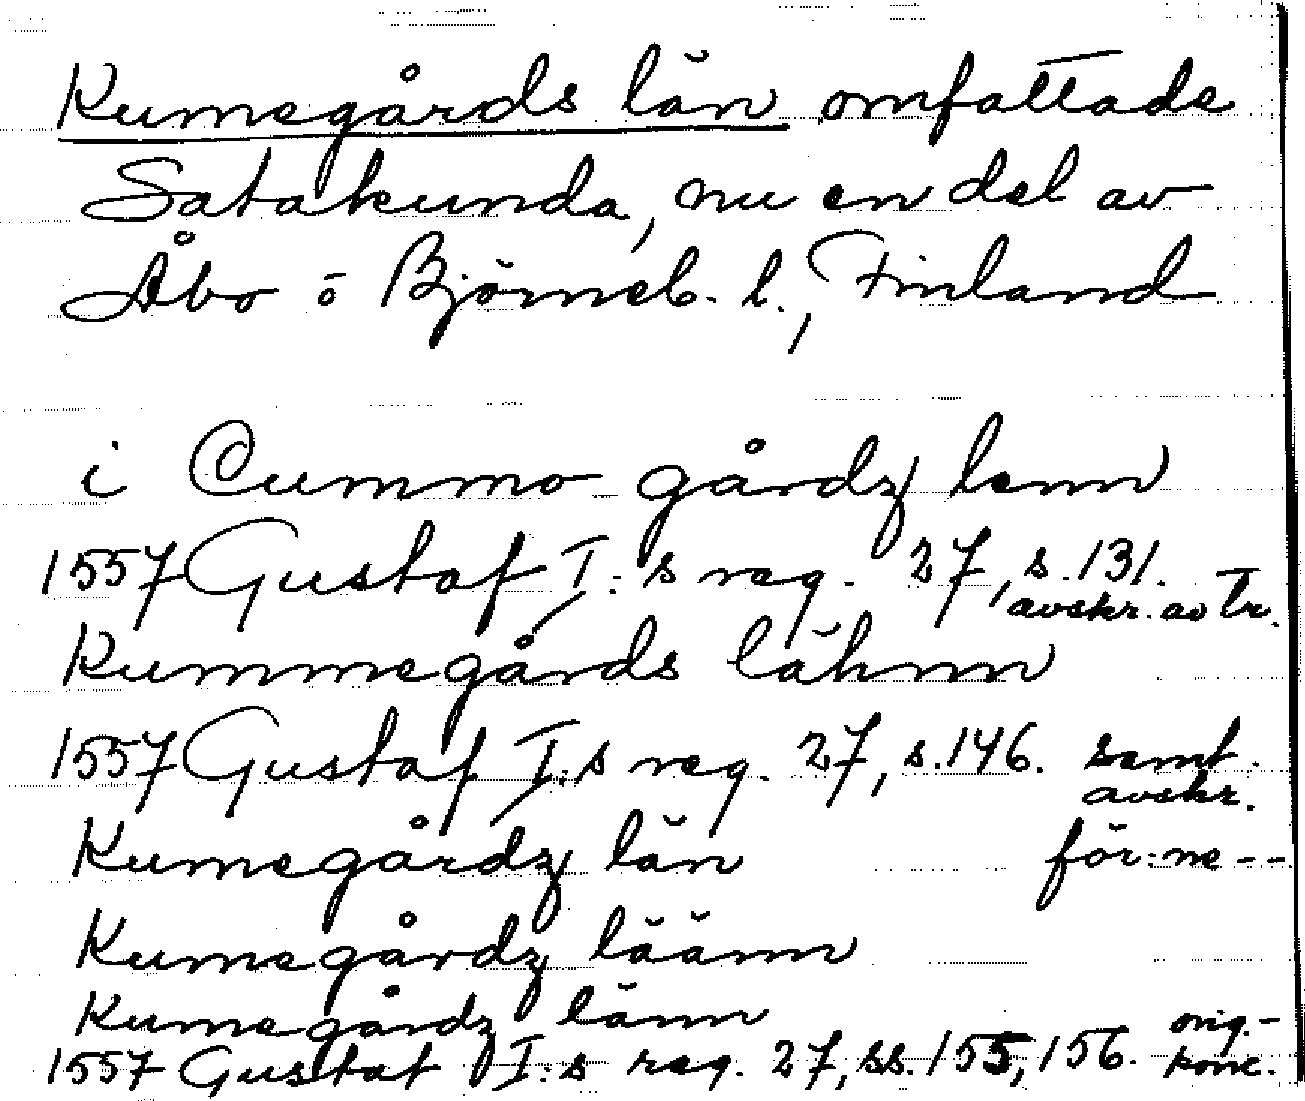 Kumegårds län omfattade
Satakunda, nu en del av
Åbo o Björneb. l., Finland
i Cummo gårdz lenn
1557 Gustaf I:s reg. 27, s. 131. avskr. av tr.
Kummegårds lähnn
1557 Gustaf I:s reg. 27, s. 146. samt. avskr.
Kumegårdz län för: ne --
Kumegårdz läänn
Kumegårdz länn
1557 Gustaf I:s reg. 27, ss. 155, 156. orig.-konc.